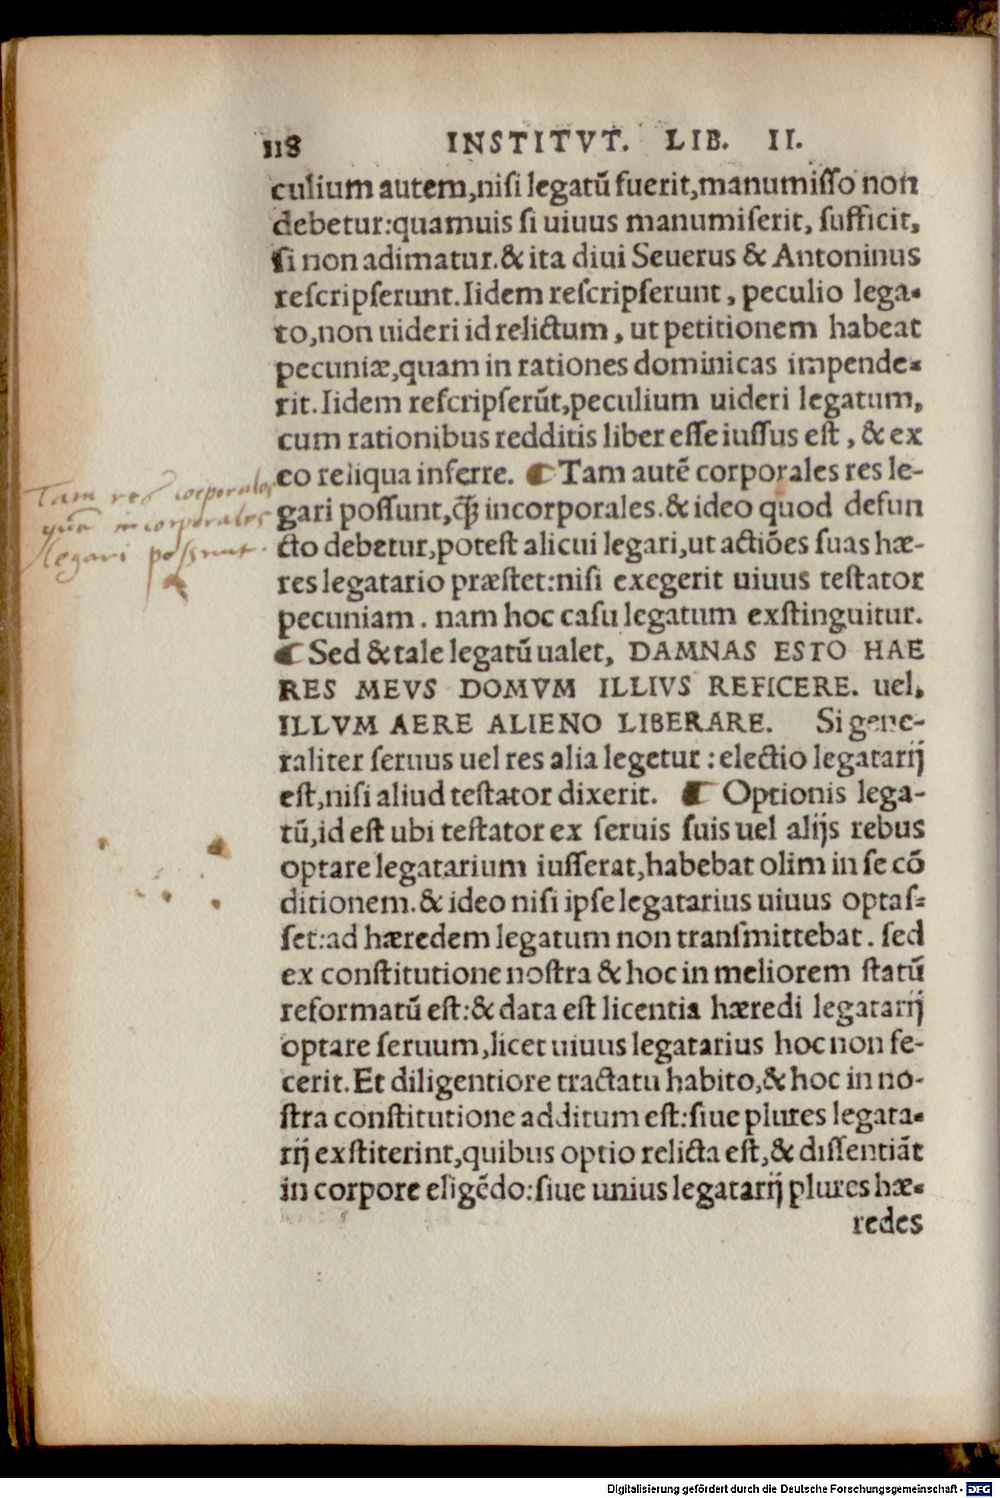 118 INSTITVT. LIB. II.
culium autem,nisi legatũ fuerit,manumisso non
debetur:quamuis si uiuus manumiserit, sufficit,
si non adimatur.& ita diui Seuerus & Antoninus
rescripserunt.Iidem rescripserunt, peculio lega-
to,non uideri id relictum, ut petitionem habeat
pecuniæ,quam in rationes dominicas impende-
rit.Iidem rescripserũt,peculium uideri legatum,
cum rationibus redditis liber esse iussus est, & ex
eo reliqua inferre. ☾Tam autẽ corporales res le-
gari possunt,ꝙ̃ incorporales.& ideo quod defun
cto debetur,potest alicui legari,ut actiões suas hæ-
res legatario præstet:nisi exegerit uiuus testator
pecuniam. nam hoc casu legatum exstinguitur.
☾Sed & tale legatũ ualet, DAMNAS ESTO HAE
RES MEVS DOMVM ILLIVS REFICERE. uel,
ILLVM AERE ALIENO LIBERARE. Si gene-
raliter seruus uel res alia legetur: electio legatarij
est,nisi aliud testator dixerit. ☾ Optionis lega-
tũ,id est ubi testator ex seruis suis uel alijs rebus
optare legatarium iusserat,habebat olim in se cõ
ditionem.& ideo nisi ipse legatarius uiuus optas-
set:ad hæredem legatum non transmittebat. sed
ex constitutione nostra & hoc in meliorem statũ
reformatũ est:& data est licentia hæredi legatarij
optare seruum,licet uiuus legatarius hoc non fe-
cerit.Et diligentiore tractatu habito,& hoc in no-
stra constitutione additum est:siue plures legata-
rij exstiterint,quibus optio relicta est,& dissentiãt
in corpore eligẽdo:siue unius legatarij plures hæ-
redes
Tam res corporales
quã incorporales
legari possunt.
Digitalisierung gefördert durch die Deutsche Forschungsgemeinschaft - DFG